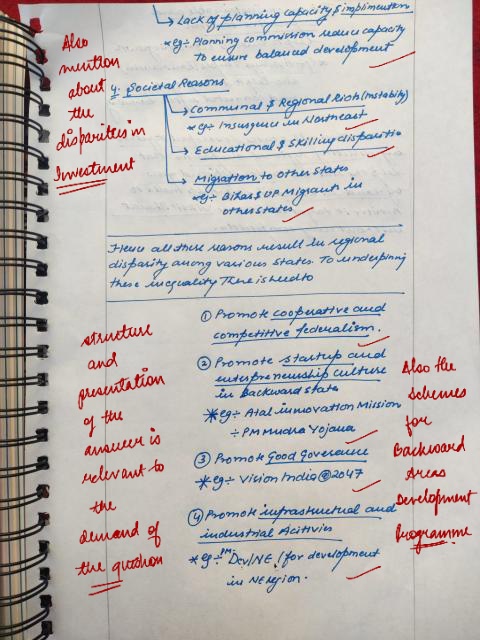 → Lack of planning capacity & implimention
* eg ÷ Planning commission reduce capacity
To ensure balanced development
Also
mention
about
the
disparities in
Investment
4. Societal Reasons
→ Communal & Regional Riots (Instability)
* eg ÷ Insurgence in Northeast
→ Educational & Skilling disparities
→ Migration to other states
* eg ÷ Bihar & UP Migrants in
other states
Hence all these reasons result in regional
disparity among various states. To underpinning
these inequality There is need to
① Promote cooperative and
competitive federalism.
② Promote startup and
enterpreneurship culture
in backward states
* eg ÷ Atal innovation Mission
÷ PM Mudra Yojana
③ Promote Good Goverance
* eg ÷ Vision India @2047
④ Promote infrastructual and
industrial Activies
* eg ÷ PM DevINE / for development
in NE region.
structure
and
presentation
of the
answer is
relevant to
the
demand of
the question
Also the
schemes
for
Backward
Areas
Development
Programme